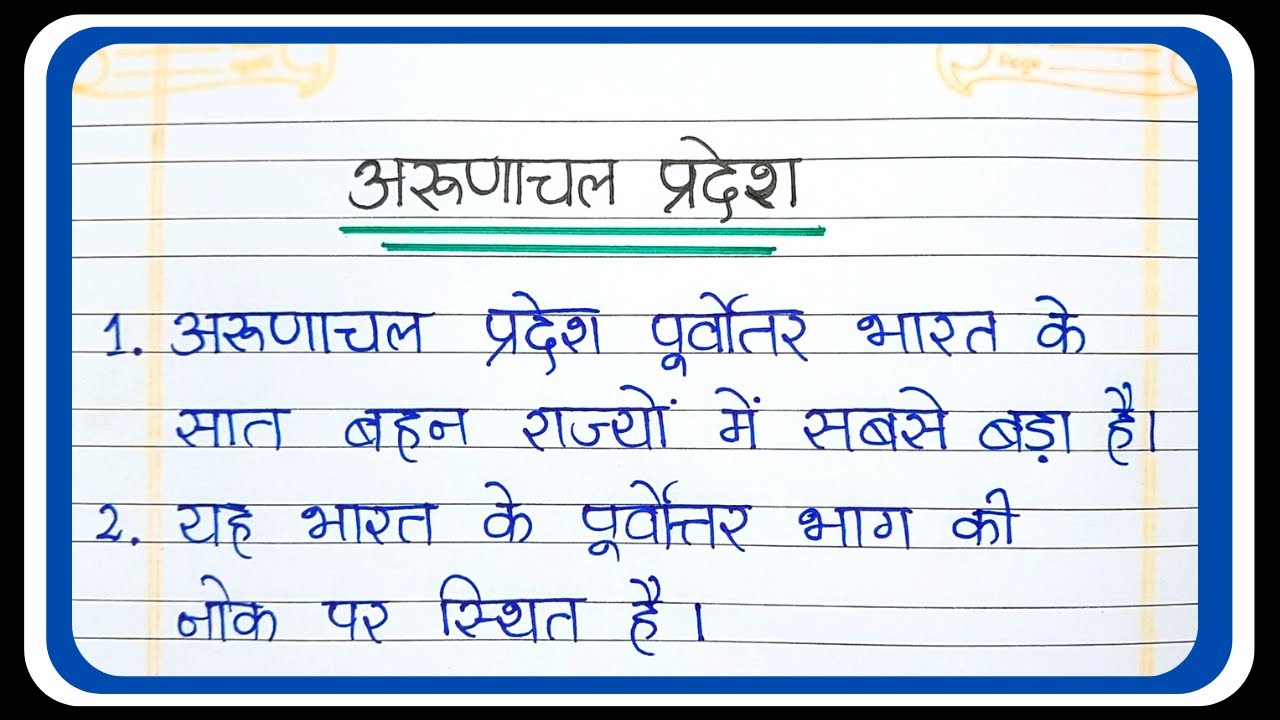 Page
अरूणाचल प्रदेश
1. अरूणाचल प्रदेश पूर्वोतर भारत के
सात बहन राज्यों में सबसे बड़ा है।
2. यह भारत के पूर्वोत्तर भाग की
नोक पर स्थित है।